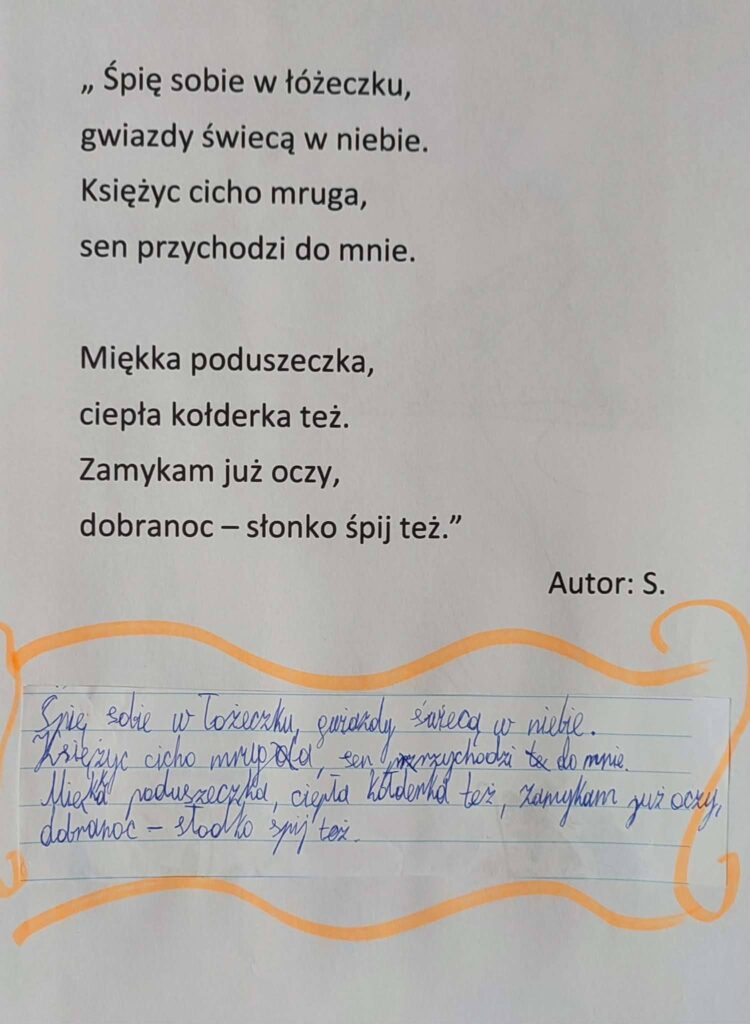 „ Śpię sobie w łóżeczku,
gwiazdy świecą w niebie.
Księżyc cicho mruga,
sen przychodzi do mnie.
Miękka poduszeczka,
ciepła kołderka też.
Zamykam już oczy,
dobranoc – słonko śpij też.”
Autor: S.
Śpię sobie w łożeczku, gwiazdy świecą w niebie.
Księżyc cicho , sen do mnie.
Miękka poduszeczka, ciepła kołderka też, zamykam już oczy,
dobranoc – słodko spij też.